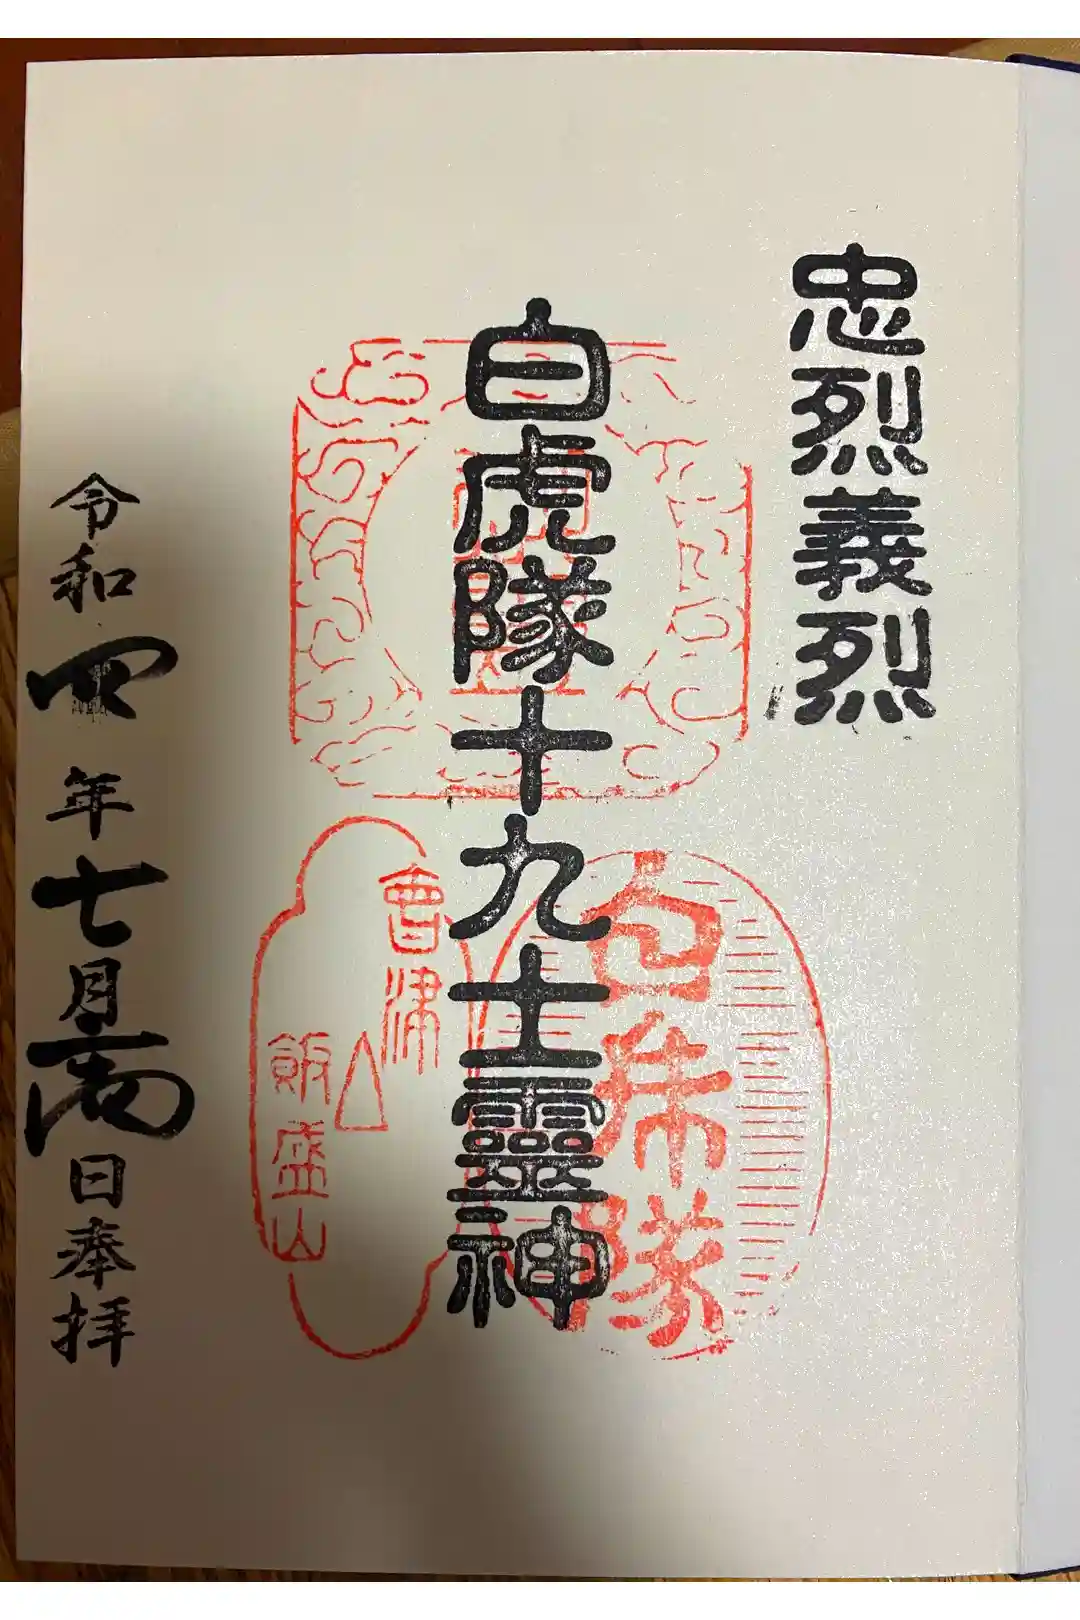 忠烈義烈
白虎隊十九士靈神
白虎隊
會津
飯盛山
令和四年七月
日奉拝